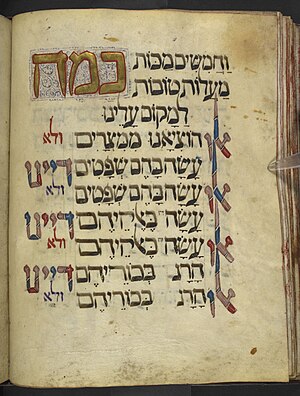 וחמשים מכות כמה
מעלות טובות
למקום עלינו
אלו הוציאנו ממצרים ולא
עשה בהם שפטים דיינו
אלו עשה בהם שפטים ולא
עשה באלהיהם דיינו
אלו עשה באלהיהם ולא
הרג בכוריהם דיינו
אלו הרג בכוריהם ולא